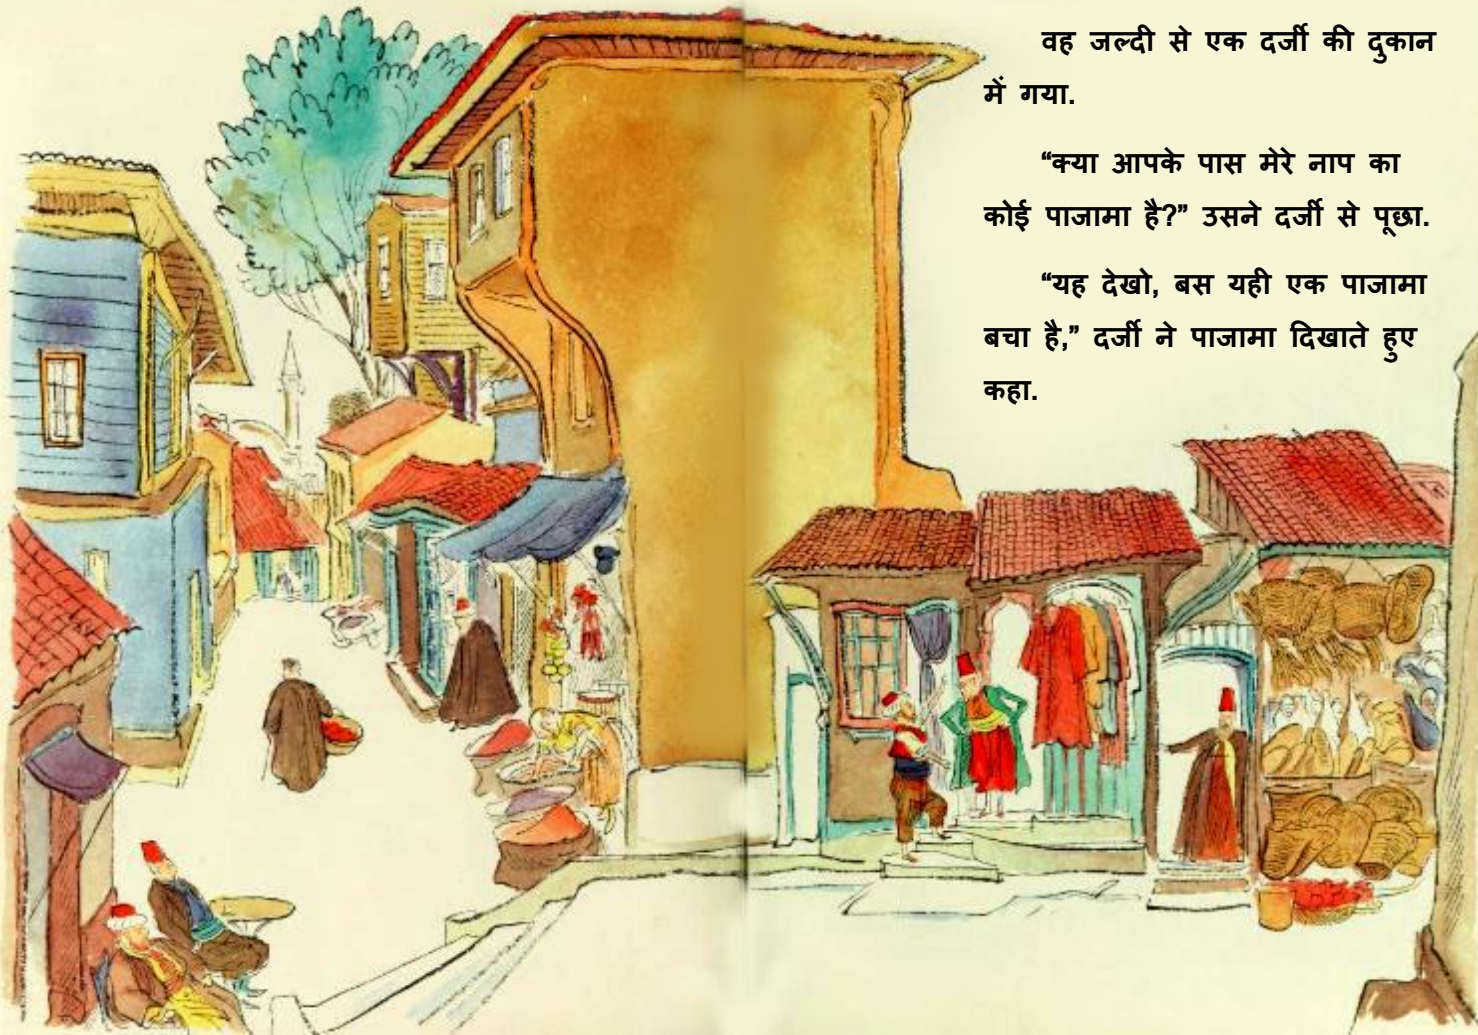 वह जल्दी से एक दर्जी की दुकान
में गया.
“क्या आपके पास मेरे नाप का
कोई पाजामा है?” उसने दर्जी से पूछा.
“यह देखो, बस यही एक पाजामा
बचा है,” दर्जी ने पाजामा दिखाते हुए
कहा.